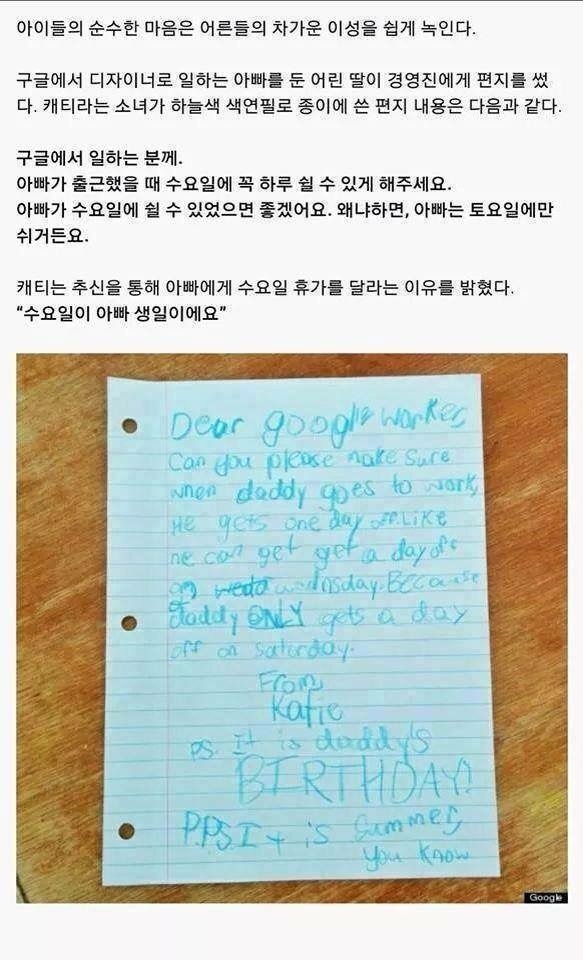 아이들의 순수한 마음은 어른들의 차가운 이성을 쉽게 녹인다.
구글에서 디자이너로 일하는 아빠를 둔 어린 딸이 경영진에게 편지를 썼
다. 캐티라는 소녀가 하늘색 색연필로 종이에 쓴 편지 내용은 다음과 같다.
구글에서 일하는 분께.
아빠가 출근했을 때 수요일에 꼭 하루 쉴 수 있게 해주세요.
아빠가 수요일에 쉴 수 있었으면 좋겠어요. 왜냐하면, 아빠는 토요일에만
쉬거든요.
캐티는 추신을 통해 아빠에게 수요일 휴가를 달라는 이유를 밝혔다.
“수요일이 아빠 생일이에요”
Dear google worker,
Can you please make sure
when daddy goes to work,
He gets one day off. Like
he can get get a day off
on wednsday. BECAUSE
daddy ONLY gets a day
off on Saturday.
From,
Katie
P.S. It is daddy's
BIRTHDAY!
P.P.S. It is Summer,
You Know
Google